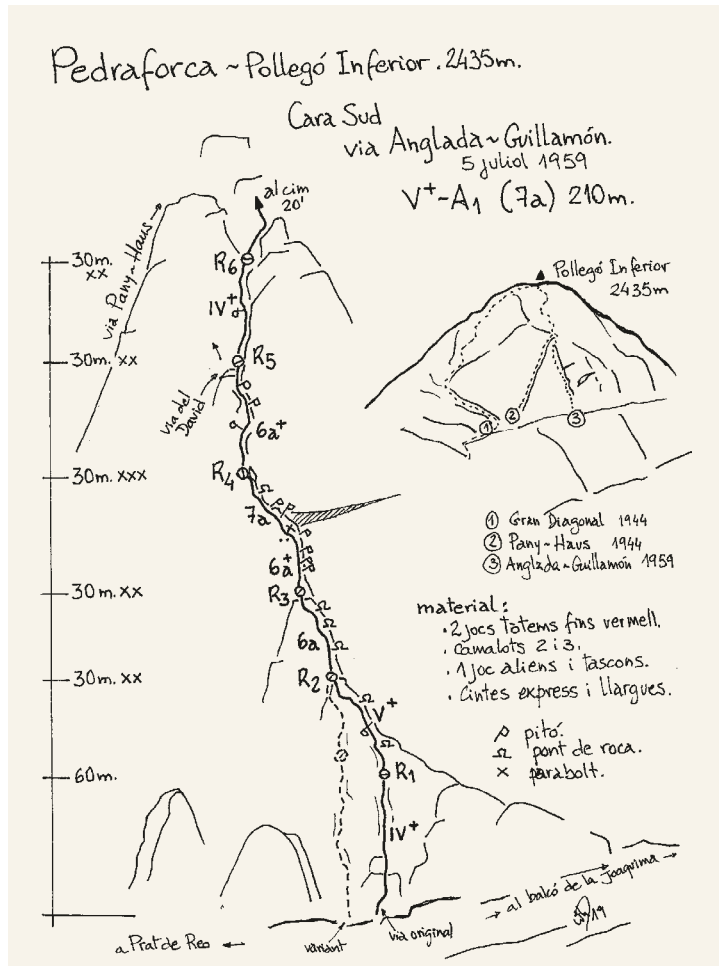 Pedraforca ~ Pollegó Inferior . 2435m.
Cara Sud
via Anglada ~ Guillamón.
5 juliol 1959
V+ - A1 (7a) 210m.
al cim
20'
via Pany ~ Haus
30m.
xx
R6
IV+
30m. xx
R5
via del
David
6a+
30m. xxx
R4
7a
6a+
30m. xx
R3
6a
30m. xx
R2
V+
60m.
R1
IV+
Pollegó Inferior
2435m
1
2
3
1 Gran Diagonal 1944
2 Pany ~ Haus 1944
3 Anglada ~ Guillamón 1959
material:
· 2 jocs tòtems fins vermell.
· Camalots 2 i 3.
· 1 joc aliens i tascons.
· Cintes express i llargues.
pitó.
Ω pont de roca.
x parabolt.
al balcó de la Joaquima →
19
a Prat de Reo ←
variant
via original